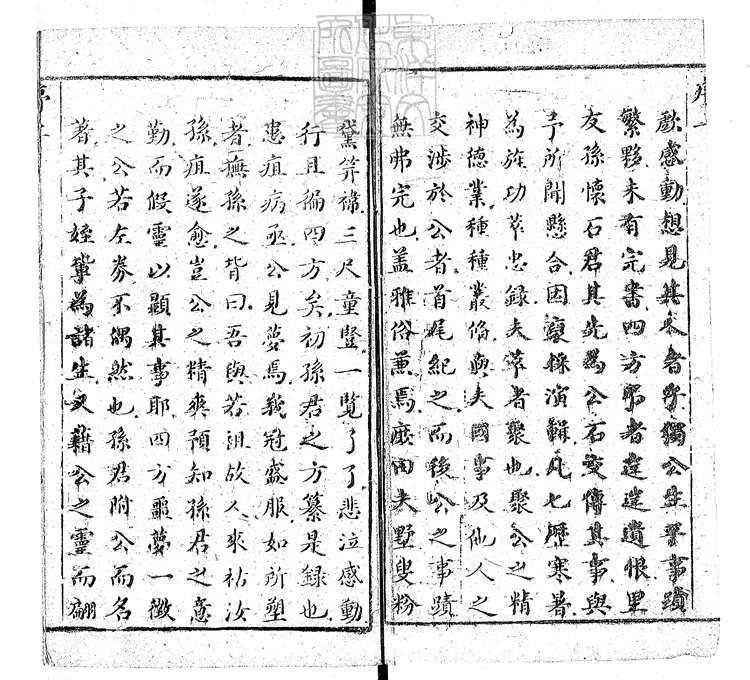 歔感動想見其人者乎獨公生平事蹟
繁夥未有完書四方弔者遑遑遺恨里
友孫懷石君其先為公石交傳其事與
予所聞懸合因裒採演輯凡七歷寒暑
為旌功萃忠録夫萃者聚也聚公之精
神德業種種叢備與夫國事及他人之
交涉於公者首尾紀之而後公之事蹟
無弗完也蓋雅俗兼焉庶田夫墅叟粉
黛笄褘三尺童豎一覧了了悲泣感動
行且徧四方矣初孫君之方纂是録也
患疽病亟公見夢焉峩冠盛服如所塑
者撫孫之背曰吾與若祖故人來祐汝
孫疽遂愈豈公之精爽預知孫君之意
勤而假靈以顯其事耶四方噩夢一徴
之公若左券不偶然也孫君附公而名
著其子姪輩為諸生又藉公之靈而翩
序一